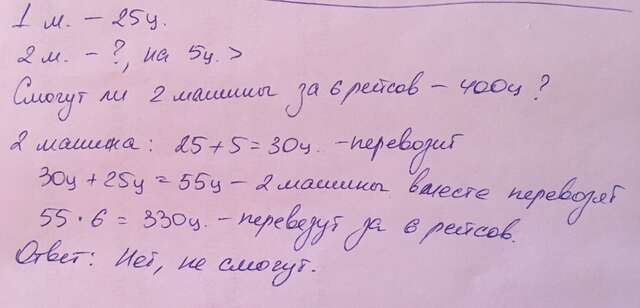 1 м. – 25ц.
2 м. – ?, на 5ц. >
Смогут ли 2 машины за 6 рейсов – 400ц?
2 машина: 25+5=30ц. – перевозит
30ц + 25ц = 55ц – 2 машины вместе перевозят
55 · 6 = 330ц. – перевезут за 6 рейсов.
Ответ: Нет, не смогут.